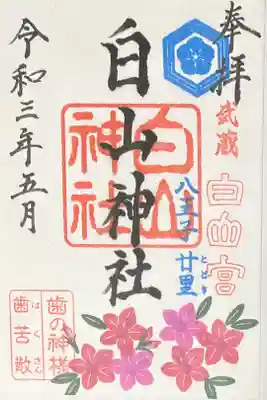 奉拝
武蔵
白山宮
八王子 廿里
とどり
白山神社
白山
神社
令和三年五月
歯の神様
はくさん
歯苦散